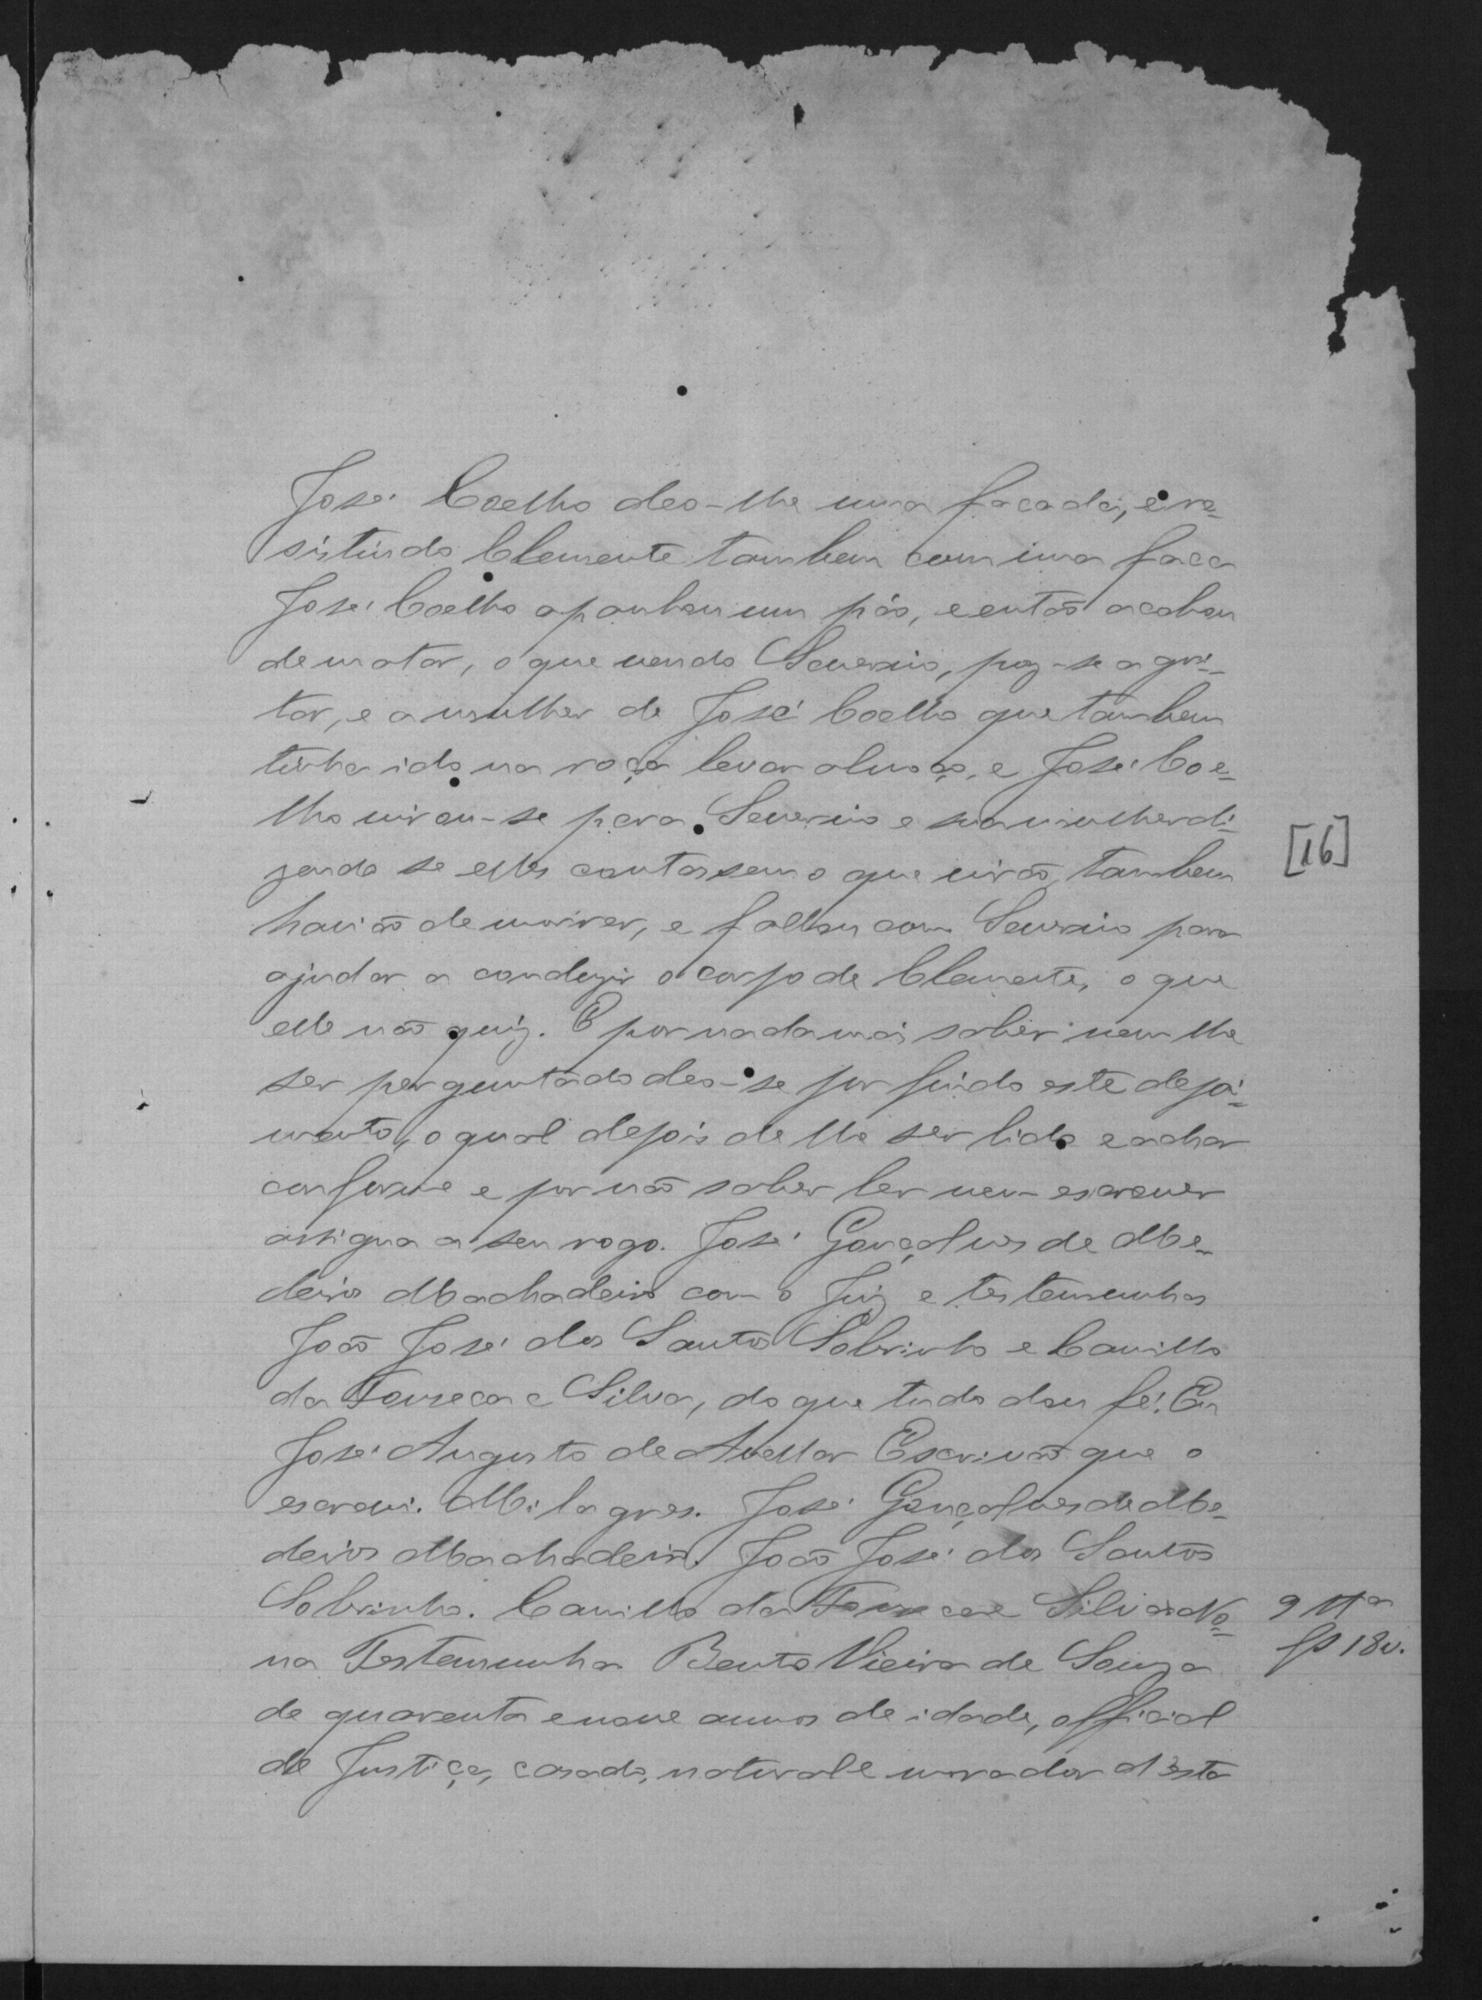 José Coelho deo-lhe uma facada, e re-
sistindo Clemente tambem com uma faca
José Coelho apanhou um páo, e então acabou
de matar, o que vendo Severino, poz-se a gri-
tar, e a mulher de José Coelho que tambem
tinha ido na roça levar almoço, e José Coe-
lho virou-se para Severino e sua mulher di-
zendo se elles contassem o que virão, tambem
havião de morrer, e fallou com Severino para
ajudar a conduzir o corpo de Clemente, o que
elle não quiz. E por nada mais saber nem lhe
ser perguntado deo-se por findo este depoi-
mento, o qual depois de lhe ser lido e achar
conforme e por não saber ler nem escrever
assigna a seu rogo José Gonçalves de Me-
deiros Machadeiro com o Juiz e testemunhas
João José dos Santos Sobrinho e Camillo
da Fonseca e Silva, do que tudo dou fé. Eu
José Augusto de Avellar Escrivão que o
escrevi. Milagres. José Gonçalves de Me-
deiros Machadeiro. João José dos Santos
Sobrinho. Camillo da Fonseca e Silva. No-
na Testemunha Bento Vieira de Souza
de quarenta e nove annos de idade, official
de Justiça, casado, natural e morador d'esta
[16]
9 tta
fs 18v.